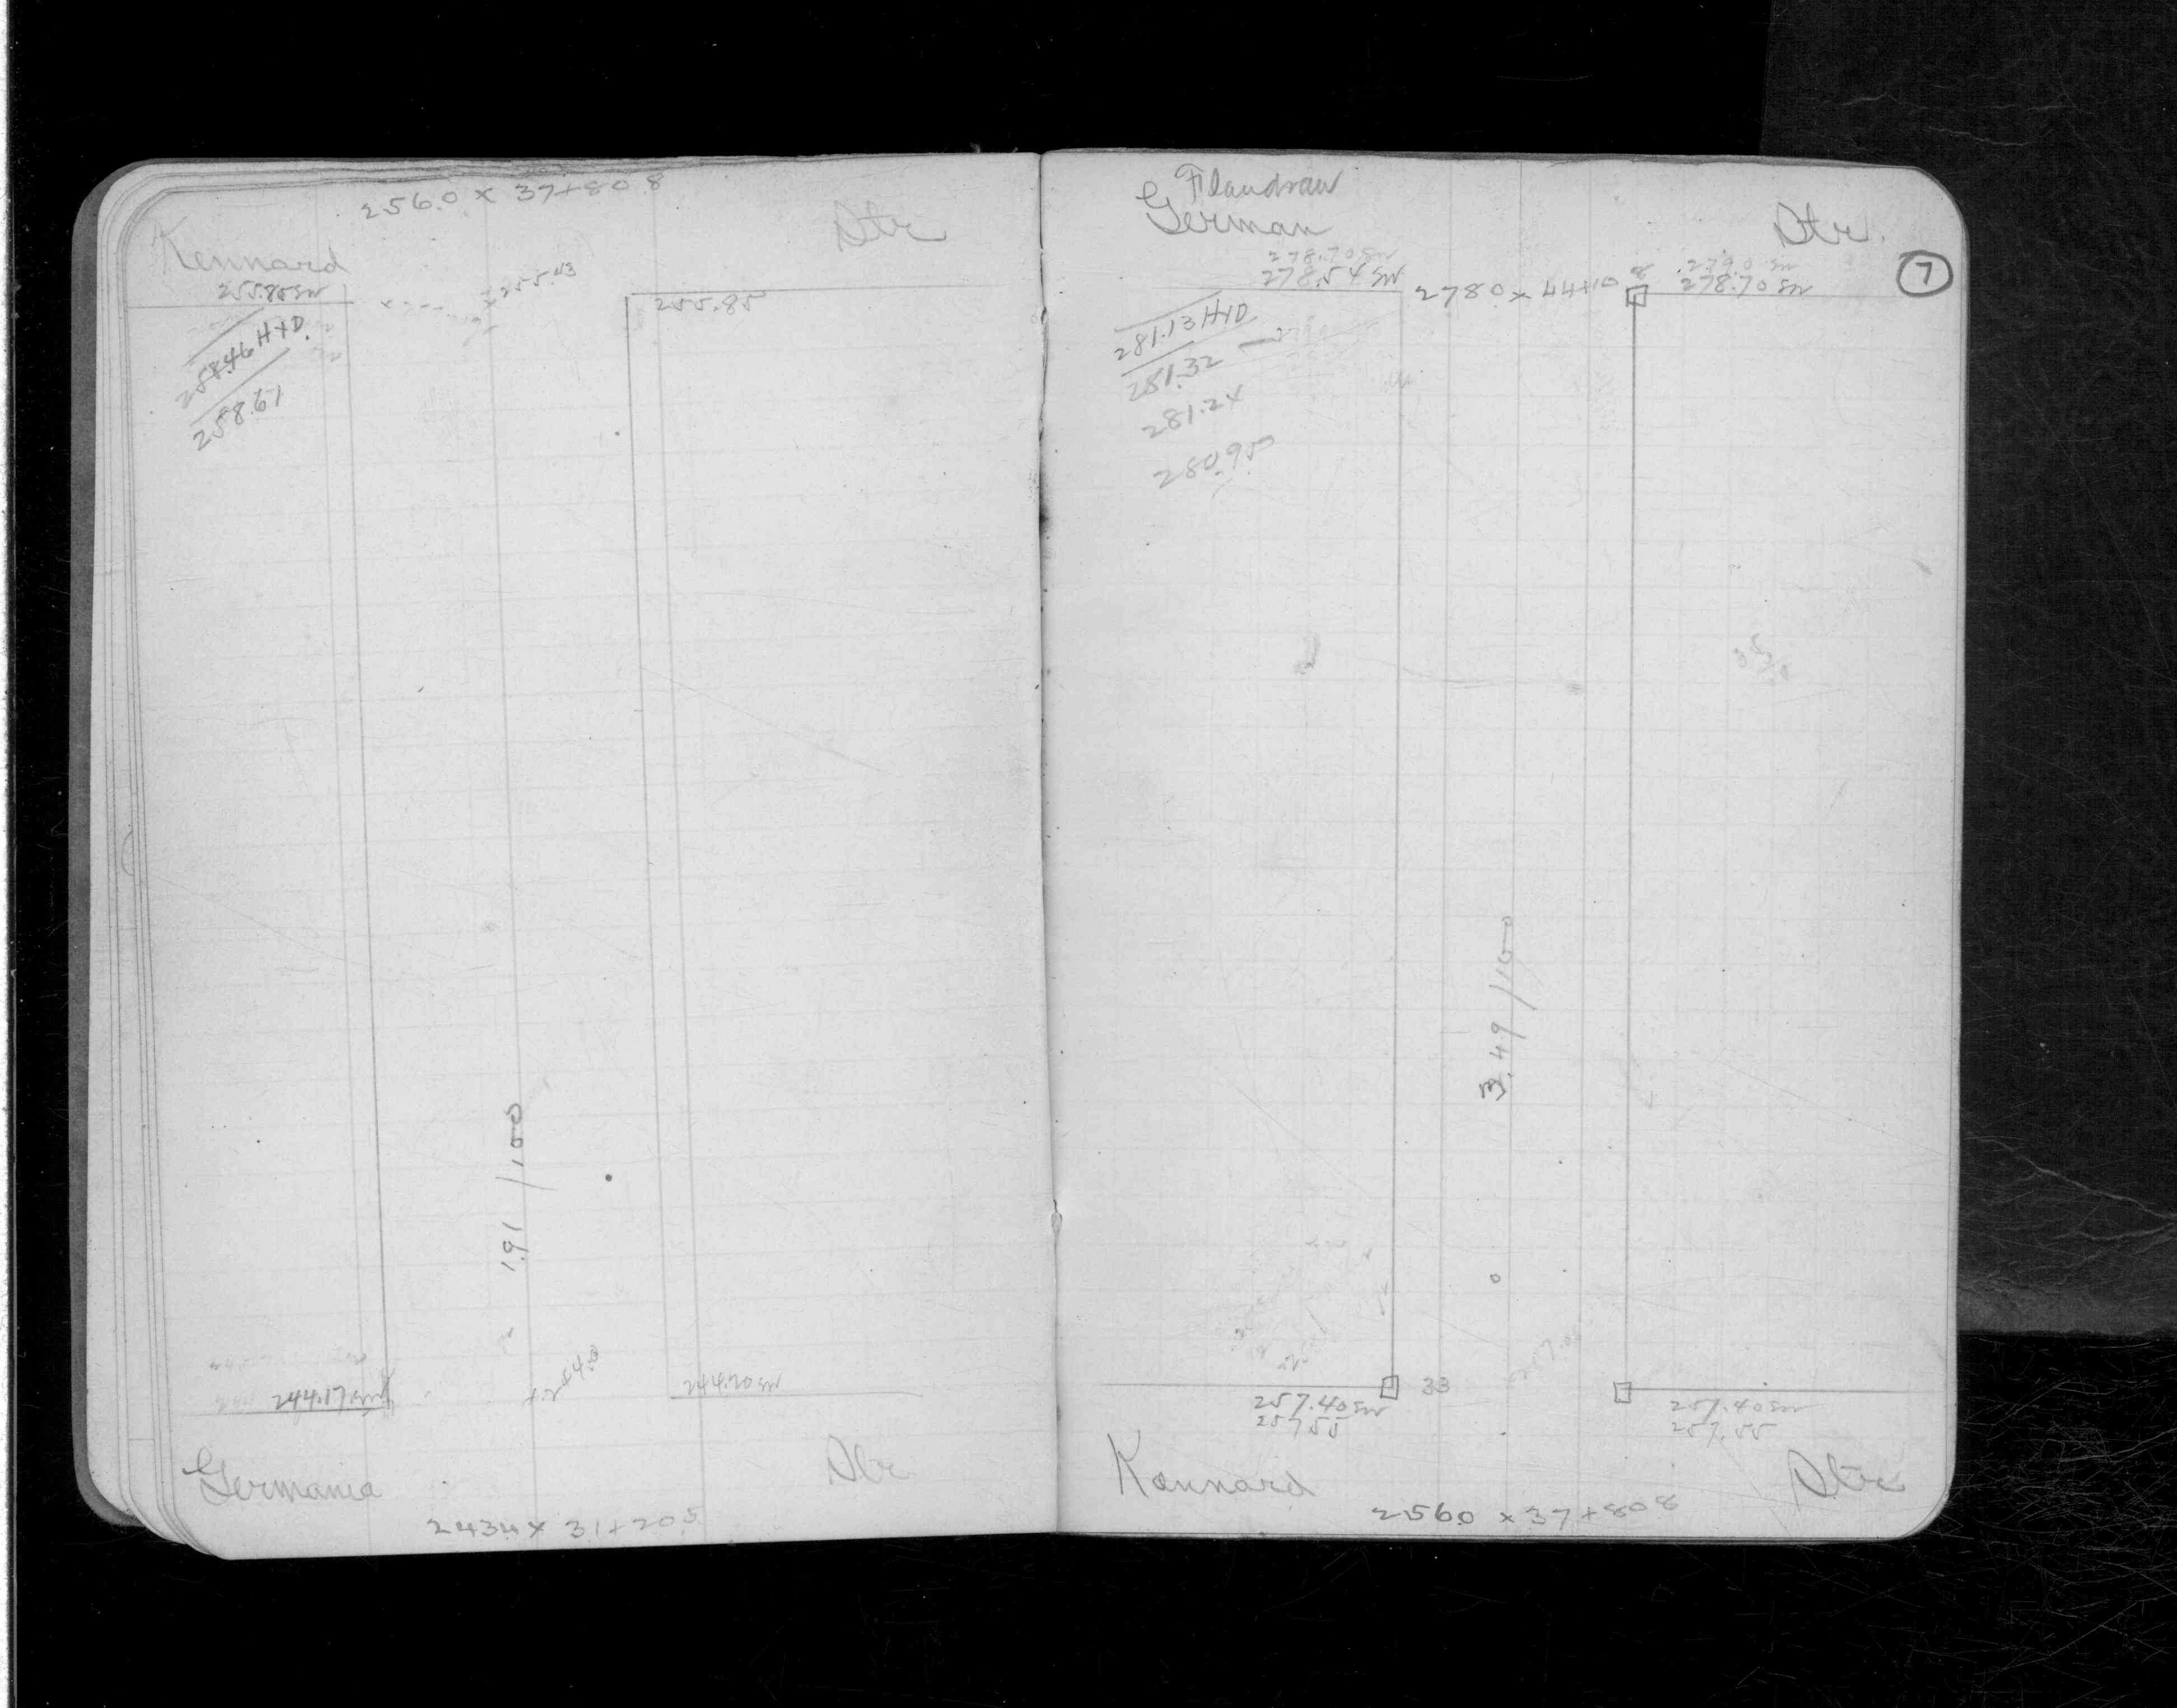 256.0 x 37+80.8
Kennard
Str
255.80 SW
x 255.43
255.85
258.46 HYD.
258.61
1.91/100
244.17 SW
244.20 SW
Germania
Str
243.4 x 31+20.5
Flandrau
German
Str.
7
278.70 SW
278.54 SW
278.0 x 44+10.8
279.0 SW
278.70 SW
281.13 HYD
281.32
281.24
280.95
3.49/100
257.40 SW
33
257.40 SW
257.55
257.55
Kennard
Str
256.0 x 37+80.8